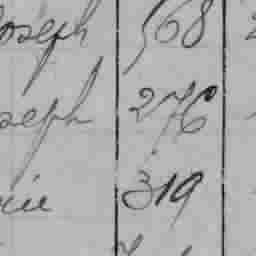 Joseph 568
seph 276
319